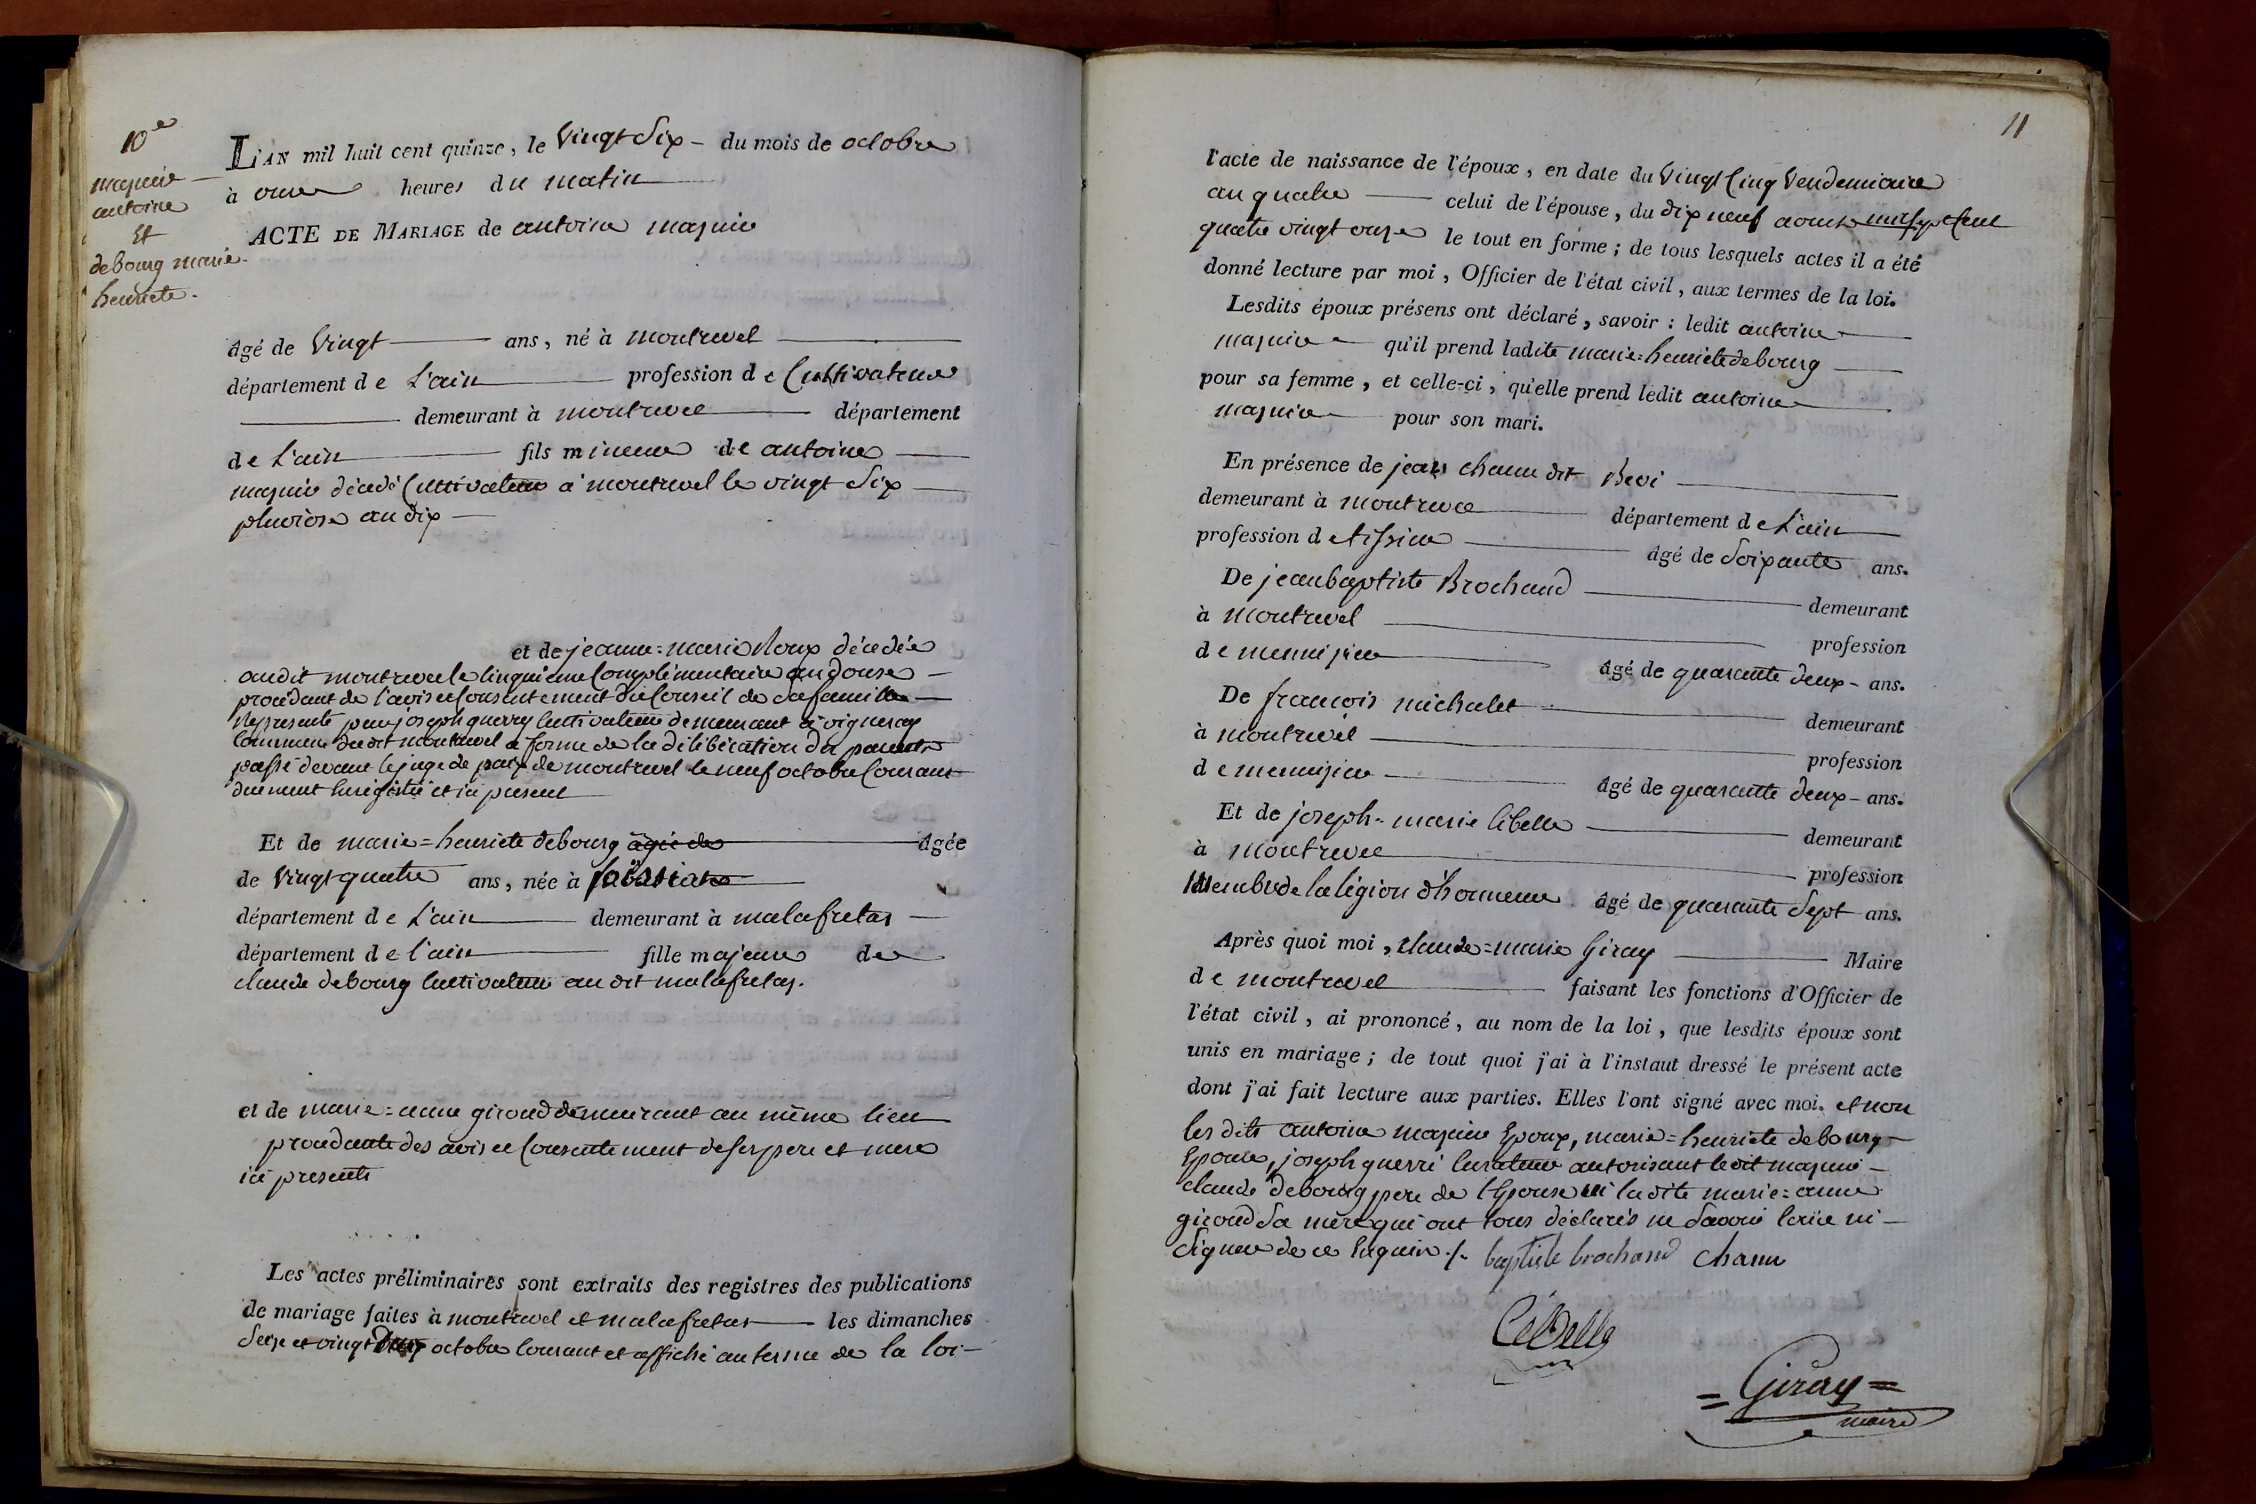 10e
majnie
antoine
Et
debourg marie
henriete.
L'AN mil huit cent quinze, le Vingt Six - du mois de octobre
à onze heures du matin
ACTE DE MARIAGE de antoine majnie
âgé de Vingt ans, né à montrevel
département de L'ain profession de Cultivateur
demeurant à montrevel département
de L'ain fils mineur de antoine
majnie décédé Cultivateur a montrevel le vingt Six
pluviose an dix
et de jeanne=marie Roux décédée
audit montrevel le Cinquieme Complémentaire an douse
procédant de l'avis et Consentement du Conseil de sa famille
Représenté par joseph guerry Cultivateur demeurant a vigneray
Commune dudit montrevel a forme de la délibération de parents
passé devant le juge de paix de montrevel le neuf octobre Courant
duement Enregistré et ici présent
Et de marie=henriete debourg âgée de âgée
de Vingt quatre ans, née à foissiat
département de L'ain demeurant à malafretas
département de l'ain fille majeure de
claude debourg Cultivateur au dit malafretas.
et de marie=anne giroud demeurant au même lieu
procédante des avis et Consentement de ses pere et mere
ici presents
Les actes préliminaires sont extraits des registres des publications
de mariage faites à montrevel et malafretas les dimanches
et vingt octobre Courant et affiché au terme de la loi
11
l'acte de naissance de l'époux, en date du Vingt Cinq Vendemiaire
an quatre celui de l'épouse, du dix neuf aoust mil sept Cent
quatre vingt onze le tout en forme; de tous lesquels actes il a été
donné lecture par moi, Officier de l'état civil, aux termes de la loi.
Lesdits époux présens ont déclaré, savoir: ledit antoine
majnie qu'il prend ladite marie=henriete debourg
pour sa femme, et celle-ci, qu'elle prend ledit antoine
majnie pour son mari.
En présence de jean chanu dit Revi
demeurant à montrevel département de L'ain
profession de tissier âgé de Soixante ans.
De jean baptiste Brochand demeurant
à montrevel profession
de menuisier âgé de quarante deux - ans.
De francois michalet demeurant
à montrevel profession
de menuisier âgé de quarante deux - ans.
Et de joseph-marie Cibelle demeurant
à montrevel profession
Membre de la légion d'honneur âgé de quarante Sept ans.
Après quoi moi, claude=marie Giray Maire
de montrevel faisant les fonctions d'Officier de
l'état civil, ai prononcé, au nom de la loi, que lesdits époux sont
unis en mariage; de tout quoi j'ai à l'instaut dressé le présent acte
dont j'ai fait lecture aux parties. Elles l'ont signé avec moi. et non
les dits antoine majnie Epoux, marie=henriete debourg
Epouse, joseph guerri Curateur autorisant ledit majnie
claude debourg pere de l'Epouse ni ladite marie=anne
giroud Sa mère qui ont tous déclarés ne Savoir Ecrire ni
Signer de ce Enquis ./. baptiste brochand Chanu
Cibelle
= Giray =
maire